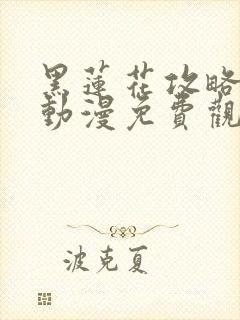 黑蓮花攻略
動漫免費觀
波克夏